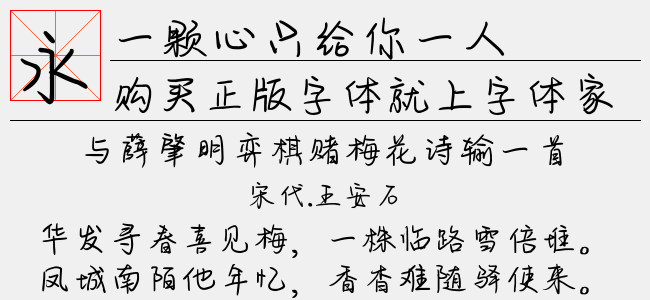 永
一颗心只给你一人
购买正版字体就上字体家
与薛肇明弈棋赌梅花诗输一首
宋代.王安石
华发寻春喜见梅，一株临路雪倍堆。
凤城南陌他年忆，香杳难随驿使来。